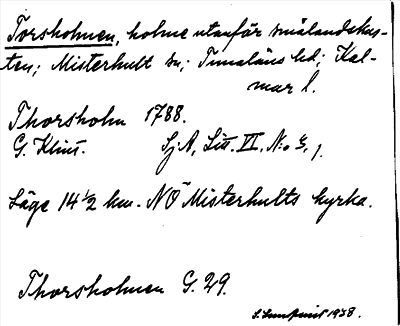 Torsholmen, holme utanför smålandskus-
ten; Misterhult sn; Tunaläns hd; Kal-
mar l.
Thorsholm 1788.
G. Klint. Sj.A, Litt. VI, N:o 5, 1.
Läge 14 1/2 km. NO Misterhults kyrka.
Thorsholmen G. 29.
1938.